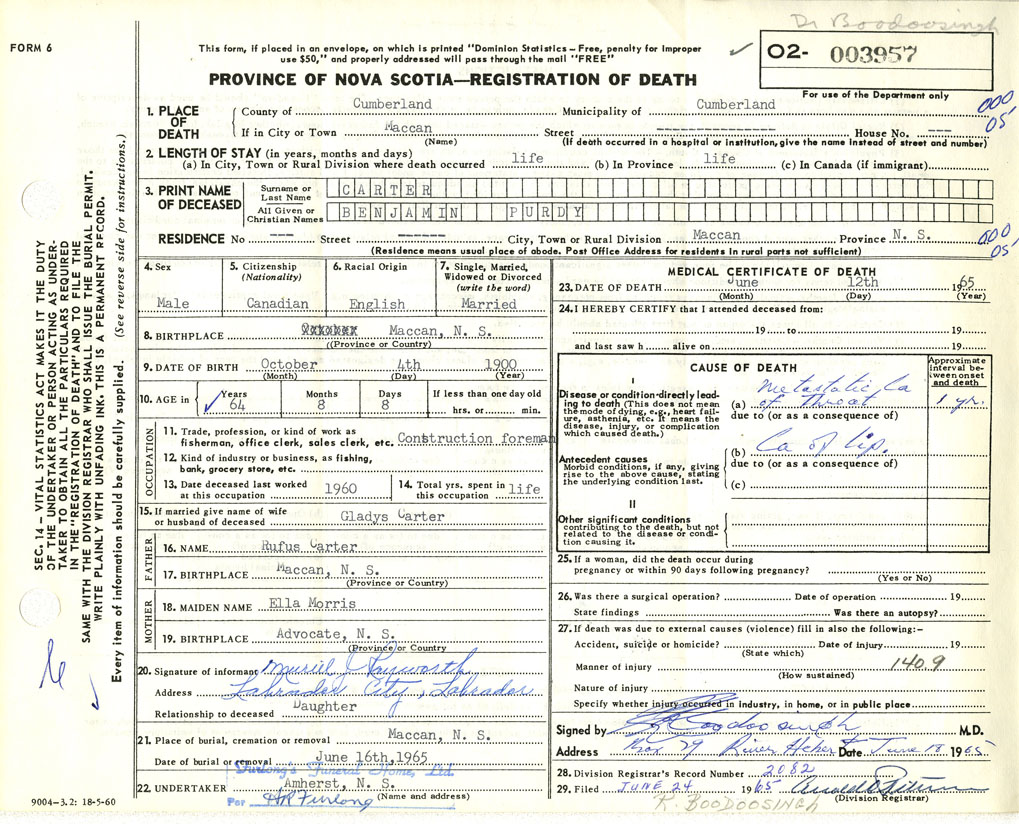 Dr Boodoosingh
FORM 6
This form, if placed in an envelope, on which is printed "Dominion Statistics – Free, penalty for improper
use $50," and properly addressed will pass through the mail "FREE"
PROVINCE OF NOVA SCOTIA—REGISTRATION OF DEATH
02- 003957
For use of the Department only
1. PLACE OF DEATH
County of Cumberland Municipality of Cumberland
000
05
If in City or Town Maccan Street ---------------- House No. ---
(Name) (If death occurred in a hospital or institution, give the name instead of street and number)
2. LENGTH OF STAY (in years, months and days)
(a) In City, Town or Rural Division where death occurred life (b) In Province life (c) In Canada (if immigrant)
3. PRINT NAME OF DECEASED
Surname or Last Name CARTER
All Given or Christian Names BENJAMIN PURDY
RESIDENCE No --- Street ----- City, Town or Rural Division Maccan Province N. S.
000
05
(Residence means usual place of abode. Post Office Address for residents in rural parts not sufficient)
4. Sex
Male
5. Citizenship
(Nationality)
Canadian
6. Racial Origin
English
7. Single, Married,
Widowed or Divorced
(write the word)
Married
8. BIRTHPLACE Maccan, N. S.
((Province or Country)
9. DATE OF BIRTH October 4th 1900
(Month) (Day) (Year)
10. AGE in Years 64 Months 8 Days 8 If less than one day old
hrs. or min.
OCCUPATION
11. Trade, profession, or kind of work as
fisherman, office clerk, sales clerk, etc. Construction foreman
12. Kind of industry or business, as fishing,
bank, grocery store, etc.
13. Date deceased last worked
at this occupation 1960
14. Total yrs. spent in
this occupation life
15. If married give name of wife
or husband of deceased Gladys Carter
FATHER
16. NAME Rufus Carter
17. BIRTHPLACE Maccan, N. S.
(Province or Country)
MOTHER
18. MAIDEN NAME Ella Morris
19. BIRTHPLACE Advocate, N. S.
(Province or Country)
20. Signature of informant Muriel J
Address Labrador City, Labrador
Relationship to deceased Daughter
21. Place of burial, cremation or removal Maccan, N. S.
Date of burial or removal June 16th, 1965
Furlong's Funeral Home, Ltd.
22. UNDERTAKER Amherst, N. S.
Per HR Furlong (Name and address)
9004-3.2: 18-5-60
MEDICAL CERTIFICATE OF DEATH
23. DATE OF DEATH June 12th 1965
(Month) (Day) (Year)
24. I HEREBY CERTIFY that I attended deceased from:
19 to 19
and last saw h alive on 19
CAUSE OF DEATH
Approximate
interval be-
tween onset
and death
I
Disease or condition directly lead-
ing to death (This does not mean
the mode of dying, e.g., heart fail-
ure, asthenia, etc. It means the
disease, injury, or complication
which caused death.)
(a) Metastatic Ca
of Throat 1 yr.
due to (or as a consequence of)
Antecedent causes
Morbid conditions, if any, giving
rise to the above cause, stating
the underlying condition last.
(b) Ca of lip.
due to (or as a consequence of)
(c)
II
Other significant conditions
contributing to the death, but not
related to the disease or condi-
tion causing it.
25. If a woman, did the death occur during
pregnancy or within 90 days following pregnancy?
(Yes or No)
26. Was there a surgical operation? Date of operation 19
State findings Was there an autopsy?
27. If death was due to external causes (violence) fill in also the following:–
Accident, suicide or homicide? Date of injury 19
(State which)
Manner of injury 140.9
(How sustained)
Nature of injury
Specify whether injury occurred in industry, in home, or in public place
Signed by Boodoosingh M.D.
Address Box 79 River Hebert Date June 18 1965
28. Division Registrar's Record Number 2082
29. Filed JUNE 24 1965
(Division Registrar)
R. BOODOOSINGH
SEC. 14 – VITAL STATISTICS ACT MAKES IT THE DUTY
OF THE UNDERTAKER OR PERSON ACTING AS UNDER-
TAKER TO OBTAIN ALL THE PARTICULARS REQUIRED
IN THE "REGISTRATION OF DEATH" AND TO FILE THE
SAME WITH THE DIVISION REGISTRAR WHO SHALL ISSUE THE BURIAL PERMIT.
WRITE PLAINLY WITH UNFADING INK. THIS IS A PERMANENT RECORD.
Every item of information should be carefully supplied. (See reverse side for instructions.)